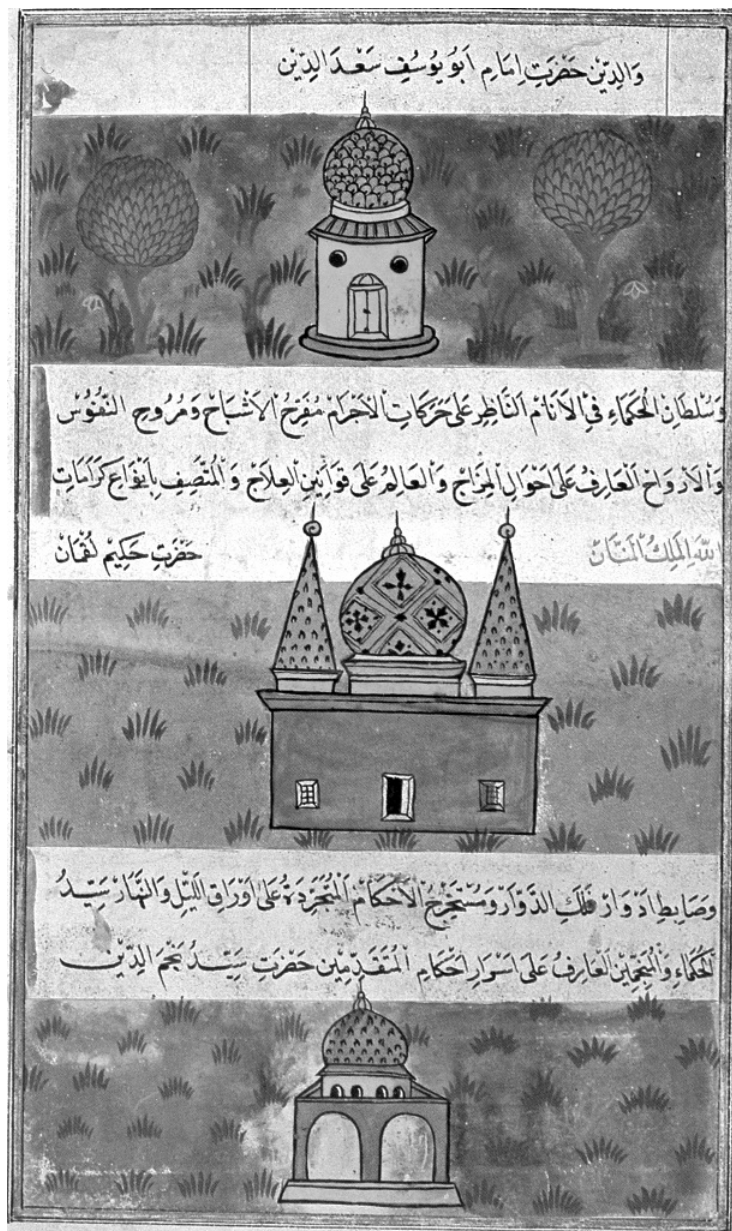 وَالدِّيْنْ حَضْرَتِ اِمَامِ اَبُو يُوسُفِ سَعْدَ الدِّيْن
وَسُلْطَانِ الْحُكَمَاءِ فِي الْاَنَامْ النَّاظِرِ عَلَى حَرَكَاتِ الْاَجْرَامْ مُفَرِّحُ الْاَشْبَاحْ وَمُرَوِّحِ النُّفُوْسْ
وَالْاَرْوَاحْ الْعَارِفُ عَلَى اَحْوَالِ الْمِزَاجْ وَالْعَالِمُ عَلَى قَوَانِيْنِ الْعِلَاجْ وَالْمُتَّصِفِ بِاَنْوَاعِ كَرَامَاتِ
اللّٰهِ الْمَلِكُ الْمَنَّانْ حَضْرَتِ حَكِيْمْ لُقْمَانْ
وَضَابِطِ اَدْوَارْ فَلَكِ الدَّوَّارْ وَمُسْتَخْرِجُ الْاَحْكَامْ الْمُتَجَرِّدَةُ عَلَى اَوْرَاقِ اللَّيْلِ وَالنَّهَارْ سَيِّدُ
الْحُكَمَاءِ وَالْمُنَجِّمِيْنِ الْعَارِفُ عَلَى اَسْرَارِ اَحْكَامِ الْمُتَقَدِّمِيْن حَضْرَتِ سَيِّدُ نَجْمَ الدِّيْن